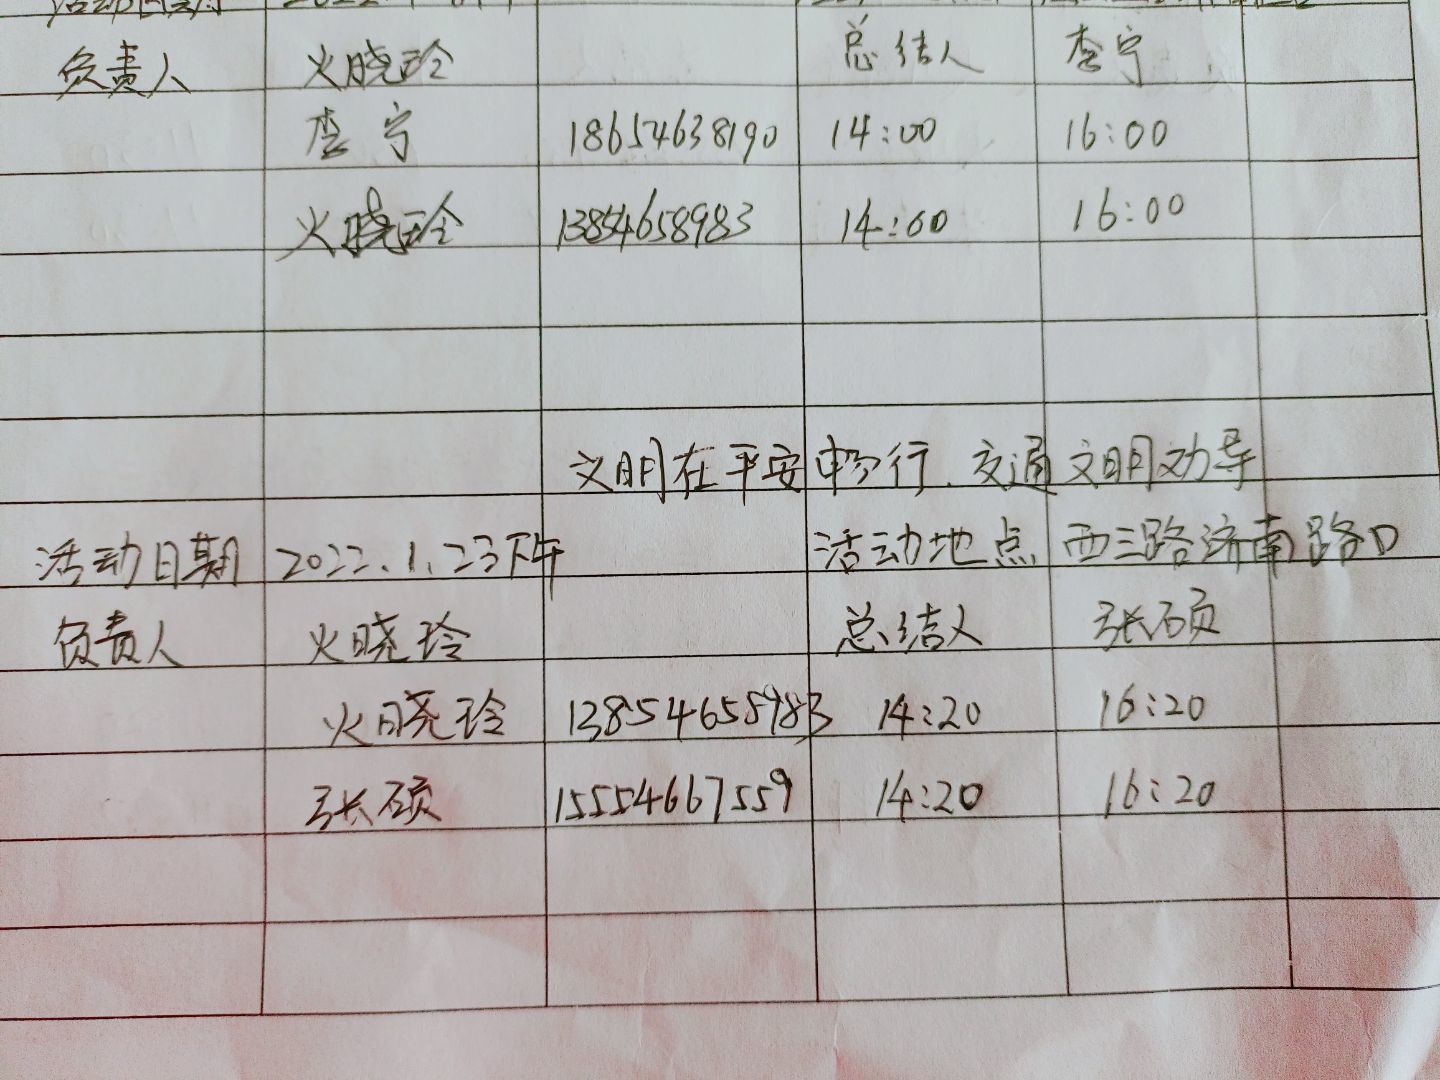 负责人 火晓玲 总结人 李宁
李宁 18654638190 14:00 16:00
火晓玲 13854658983 14:00 16:00
文明在平安畅行.交通文明劝导
活动日期 2022.1.23下午 活动地点 西三路济南路口
负责人 火晓玲 总结人 张硕
火晓玲 13854658983 14:20 16:20
张硕 15554667559 14:20 16:20